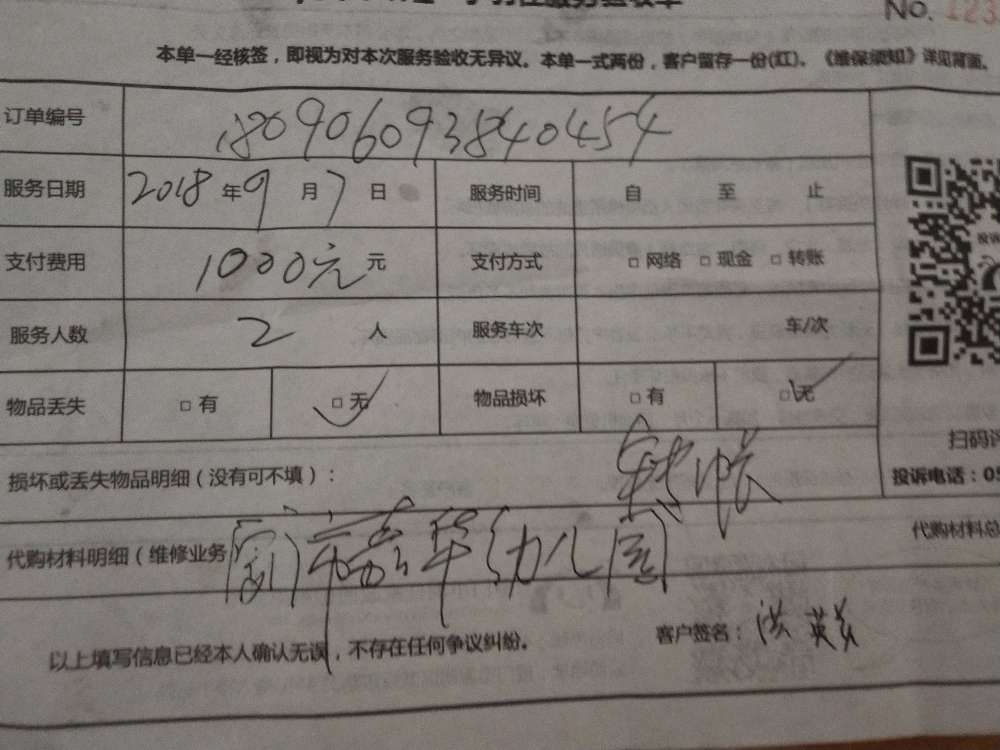 服务验收单
No. 123
本单一经核签，即视为对本次服务验收无异议。本单一式两份，客户留存一份(红)、《维保须知》详见背面。
订单编号 180906093840454
服务日期 2018 年 9 月 7 日 服务时间 自 至 止
支付费用 1000元 元 支付方式 □ 网络 □ 现金 □ 转账
服务人数 2 人 服务车次 车/次
物品丢失 □ 有 □ 无 物品损坏 □ 有 □ 无
扫码
损坏或丢失物品明细（没有可不填）： 转帐
投诉电话：05
代购材料明细（维修业务 厦门市嘉华幼儿园
代购材料总
以上填写信息已经本人确认无误，不存在任何争议纠纷。
客户签名：洪英